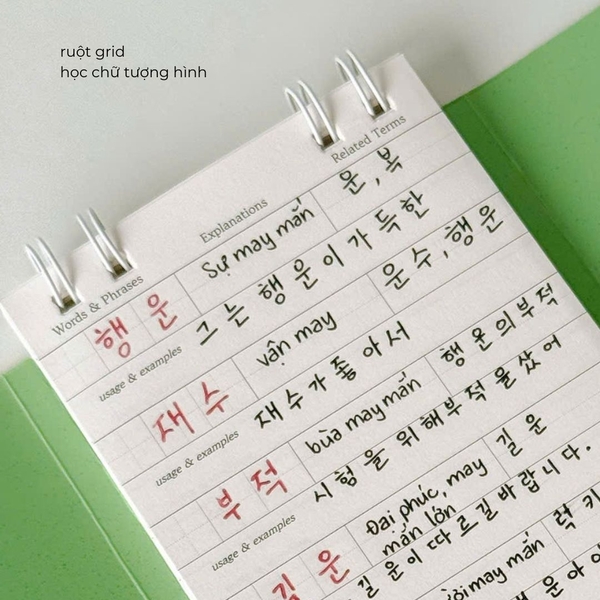 ruột grid
học chữ tượng hình
Words & Phrases Explanations Related Terms
행운 Sự may mắn 운, 복
usage & examples 그는 행운이 가득한
재수 vận may 운수, 행운
usage & examples 재수가 좋아서
부적 bùa may mắn 행운의 부적
usage & examples 시험을 위해 부적을 샀어
길운 Đại phúc, may mắn lớn 길운
usage & examples 길운이 따르길 바랍니다.
may mắn 럭키